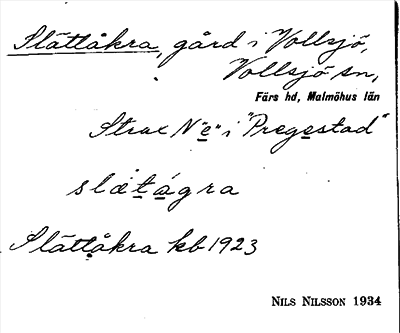 Slättåkra, gård i Vollsjö,
Vollsjö sn,
Färs hd, Malmöhus län
Strax N "e" i "Pregestad"
slætågra
Slättåkra kb 1923
NILS NILSSON 1934